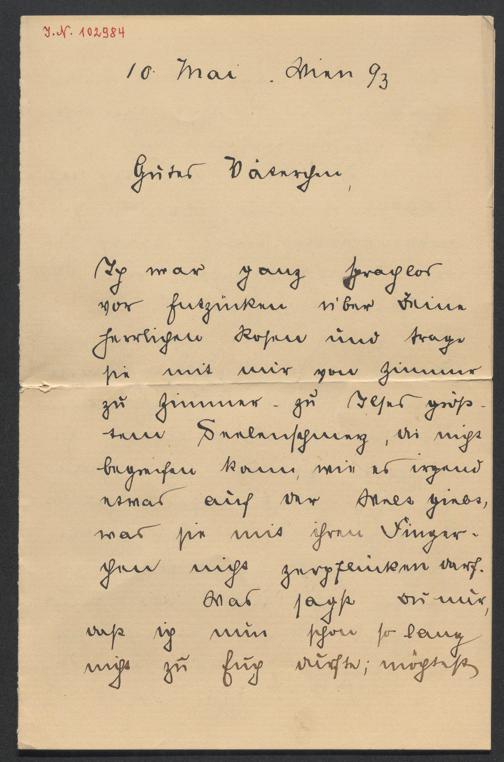 I.N. 102984
10. Mai. Wien 93
Gutes Väterchen,
Ich war ganz sprachlos
vor Entzücken über Deine
herrlichen Rosen und trage
sie mit mir von Zimmer
zu Zimmer - zu Ilses größ-
tem Seelenschmerz, die nicht
begreifen kann, wie es irgend
etwas auf der Welt giebt,
was sie mit ihren Finger-
chen nicht zerpflücken darf.
Was sagst Du nur,
daß ich nun schon so lang
nicht zu Euch durfte; möchtest